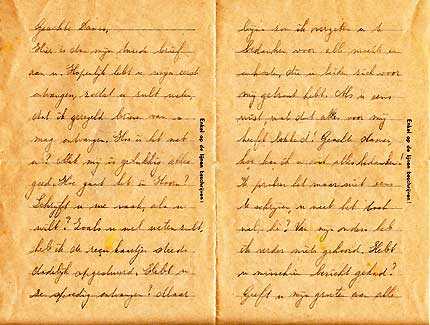 Geachte Dames,
Hier is dan mijn tweede brief
aan u. Hopelijk hebt u mijn eerste
ontvangen, zodat u zult weten,
dat ik geregeld brieven van u
mag ontvangen. Hoe is het met
u? Met mij is gelukkig alles
goed. Hoe gaat het in Hoorn?
Schrijft u me vaak, als u
wilt? Zoals u wel weten zult,
heb ik de kaartje steeds
dadelijk opgestuurd. Hebt u
ze spoedig ontvangen? Maar
Enkel op de lijnen beschrijven!
bijna zou ik vergeten u te
bedanken voor alle moeite en
die u beiden zich voor
mij getroost hebt. Als u eens
wist wat dat alles voor mij
heeft! Geachte dames,
hoe kan ik u ooit alles bedanken!
Ik probeer het maar niet eens
te schrijven, u weet het toch
wel, hè? Van mijn ouders heb
ik verder niets gehoord. Hebt
u misschien bericht gehad?
Geeft u mijn groeten aan alle
Enkel op de lijnen beschrijven!